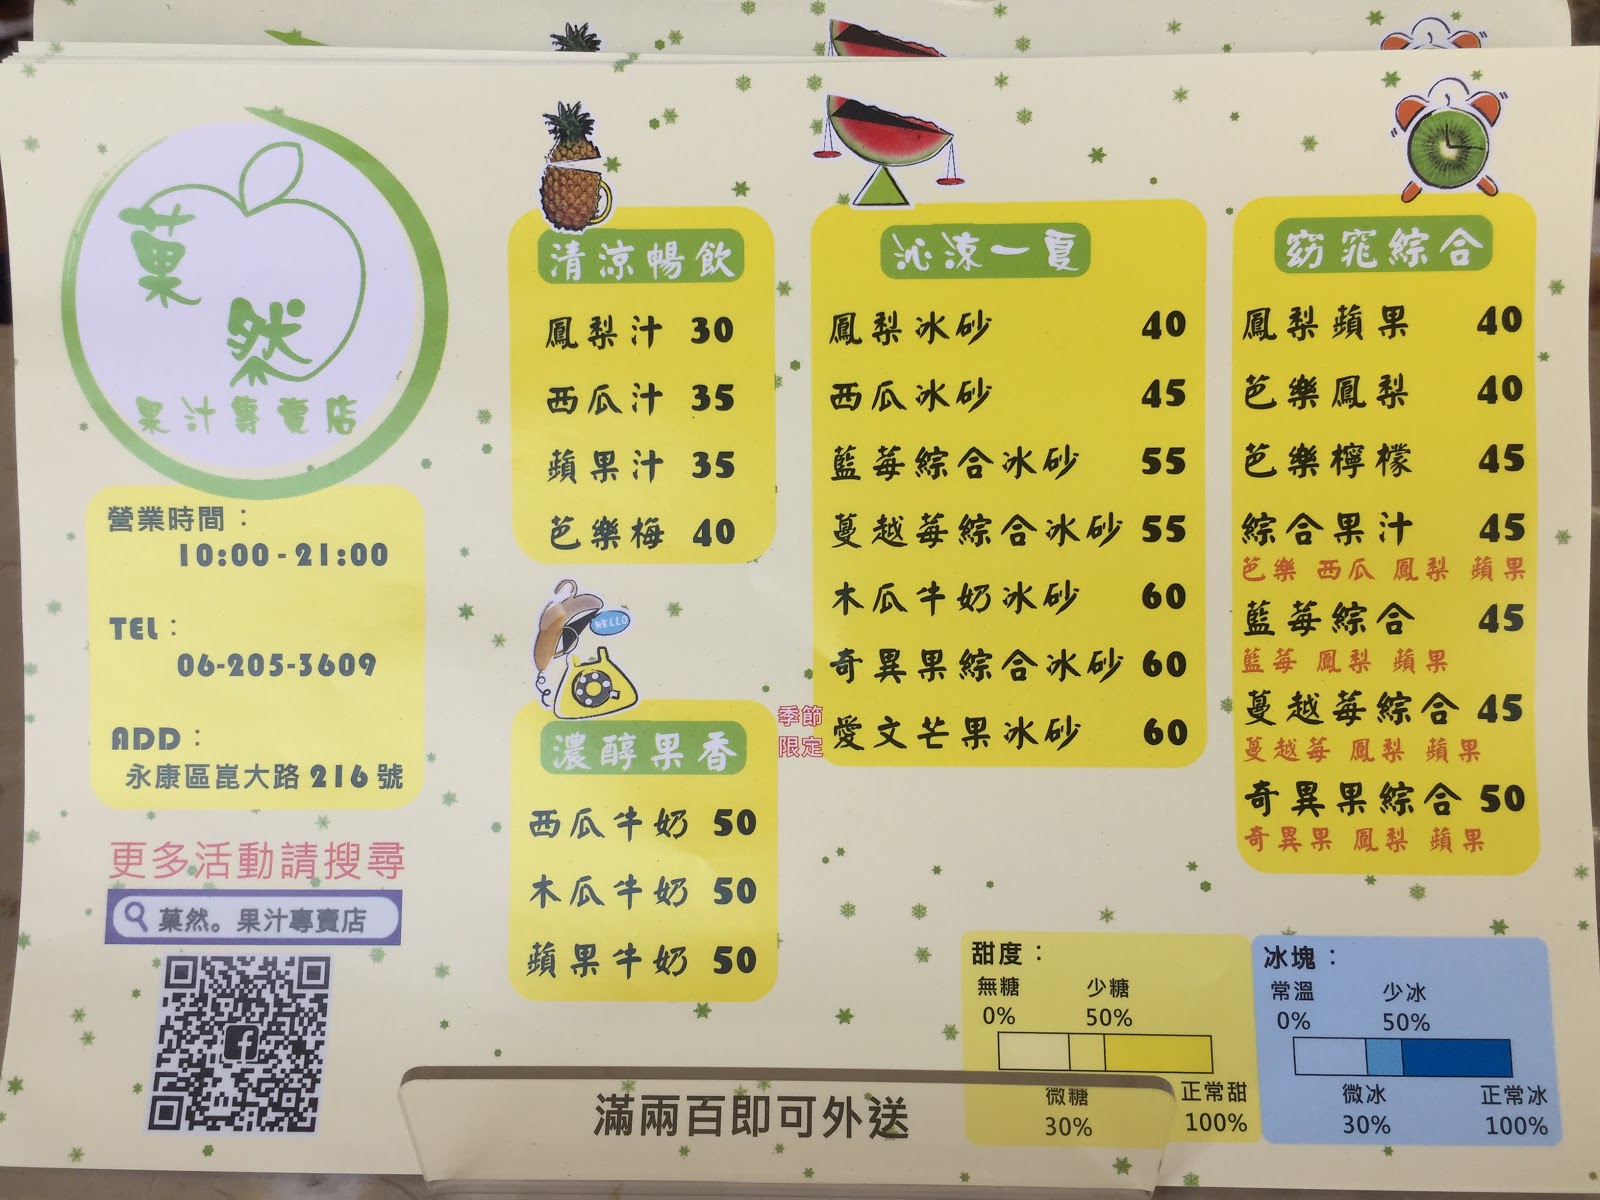 菓然
果汁專賣店
營業時間：
10:00 - 21:00
TEL：
06-205-3609
ADD：
永康區崑大路 216 號
更多活動請搜尋
菓然。果汁專賣店
清涼暢飲
鳳梨汁 30
西瓜汁 35
蘋果汁 35
芭樂梅 40
HELLO
濃醇果香
西瓜牛奶 50
木瓜牛奶 50
蘋果牛奶 50
沁涼一夏
鳳梨冰砂 40
西瓜冰砂 45
藍莓綜合冰砂 55
蔓越莓綜合冰砂 55
木瓜牛奶冰砂 60
奇異果綜合冰砂 60
季節
限定
愛文芒果冰砂 60
窈窕綜合
鳳梨蘋果 40
芭樂鳳梨 40
芭樂檸檬 45
綜合果汁 45
芭樂 西瓜 鳳梨 蘋果
藍莓綜合 45
藍莓 鳳梨 蘋果
蔓越莓綜合 45
蔓越莓 鳳梨 蘋果
奇異果綜合 50
奇異果 鳳梨 蘋果
甜度：
無糖 少糖
0% 50%
微糖 正常甜
30% 100%
冰塊：
常溫 少冰
0% 50%
微冰 正常冰
30% 100%
滿兩百即可外送